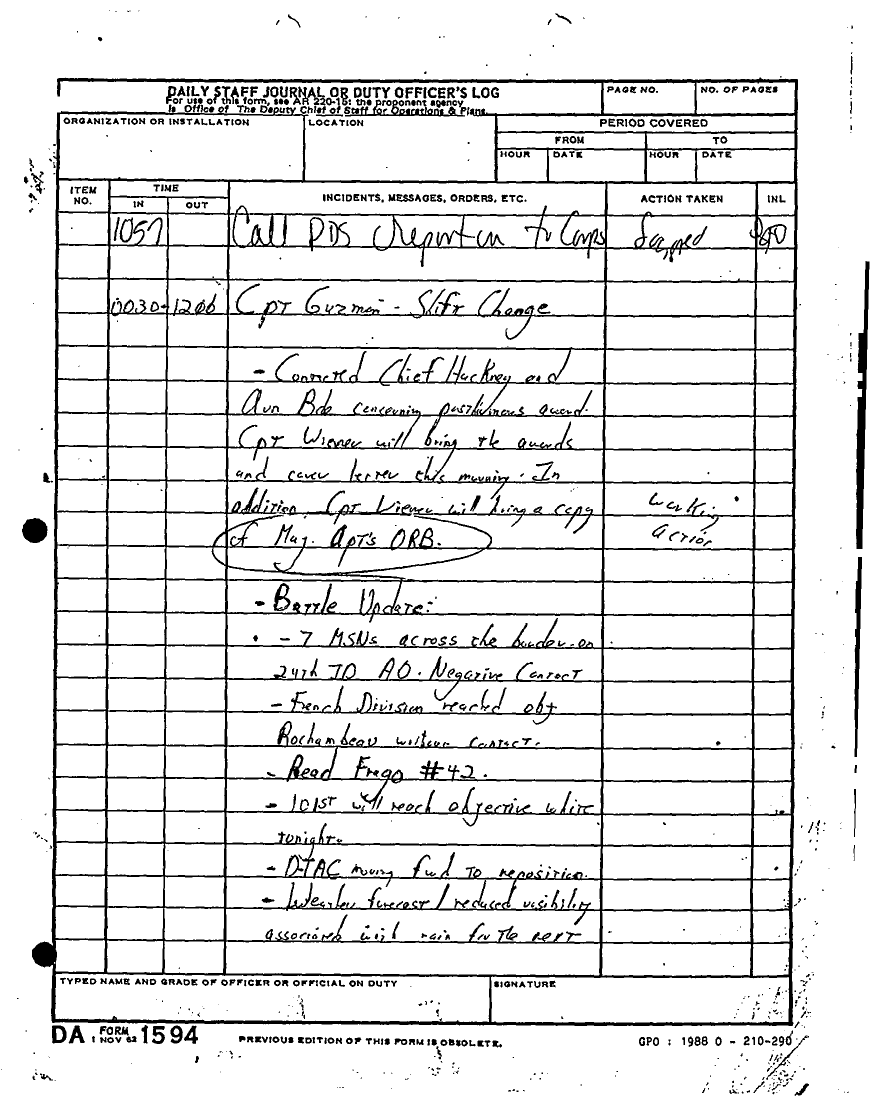 DAILY STAFF JOURNAL OR DUTY OFFICER'S LOG
For use of this form, see AR 220-15; the proponent agency
is Office of The Deputy Chief of Staff for Operations & Plans.
PAGE NO.
NO. OF PAGES
ORGANIZATION OR INSTALLATION
LOCATION
PERIOD COVERED
FROM
TO
HOUR
DATE
HOUR
DATE
ITEM NO.
TIME
IN
OUT
INCIDENTS, MESSAGES, ORDERS, ETC.
ACTION TAKEN
INL
1057 Call PDS report to Corps
0030-1206 Cpt Guzman - Shift Change
- Contacted Chief Hackney and
Avn Bde concerning posthumous award.
Cpt Wiener will bring the awards
and cover letter this morning. In
addition, Cpt Wiener will bring a copy working
of Maj. Apt's ORB. action
- Battle Update:
- 7 MSNs across the border on
24th ID AO. Negative Contact
- French Division reached obj
Rochambeau without contact.
- Read Frago #42.
- 101st will reach objective white
tonight.
- DTAC moving fwd to reposition.
- Weather forecast / reduced visibility
associated with rain for the next
TYPED NAME AND GRADE OF OFFICER OR OFFICIAL ON DUTY
SIGNATURE
DA FORM 1 NOV 62 1594
PREVIOUS EDITION OF THIS FORM IS OBSOLETE.
GPO : 1988 O - 210-290